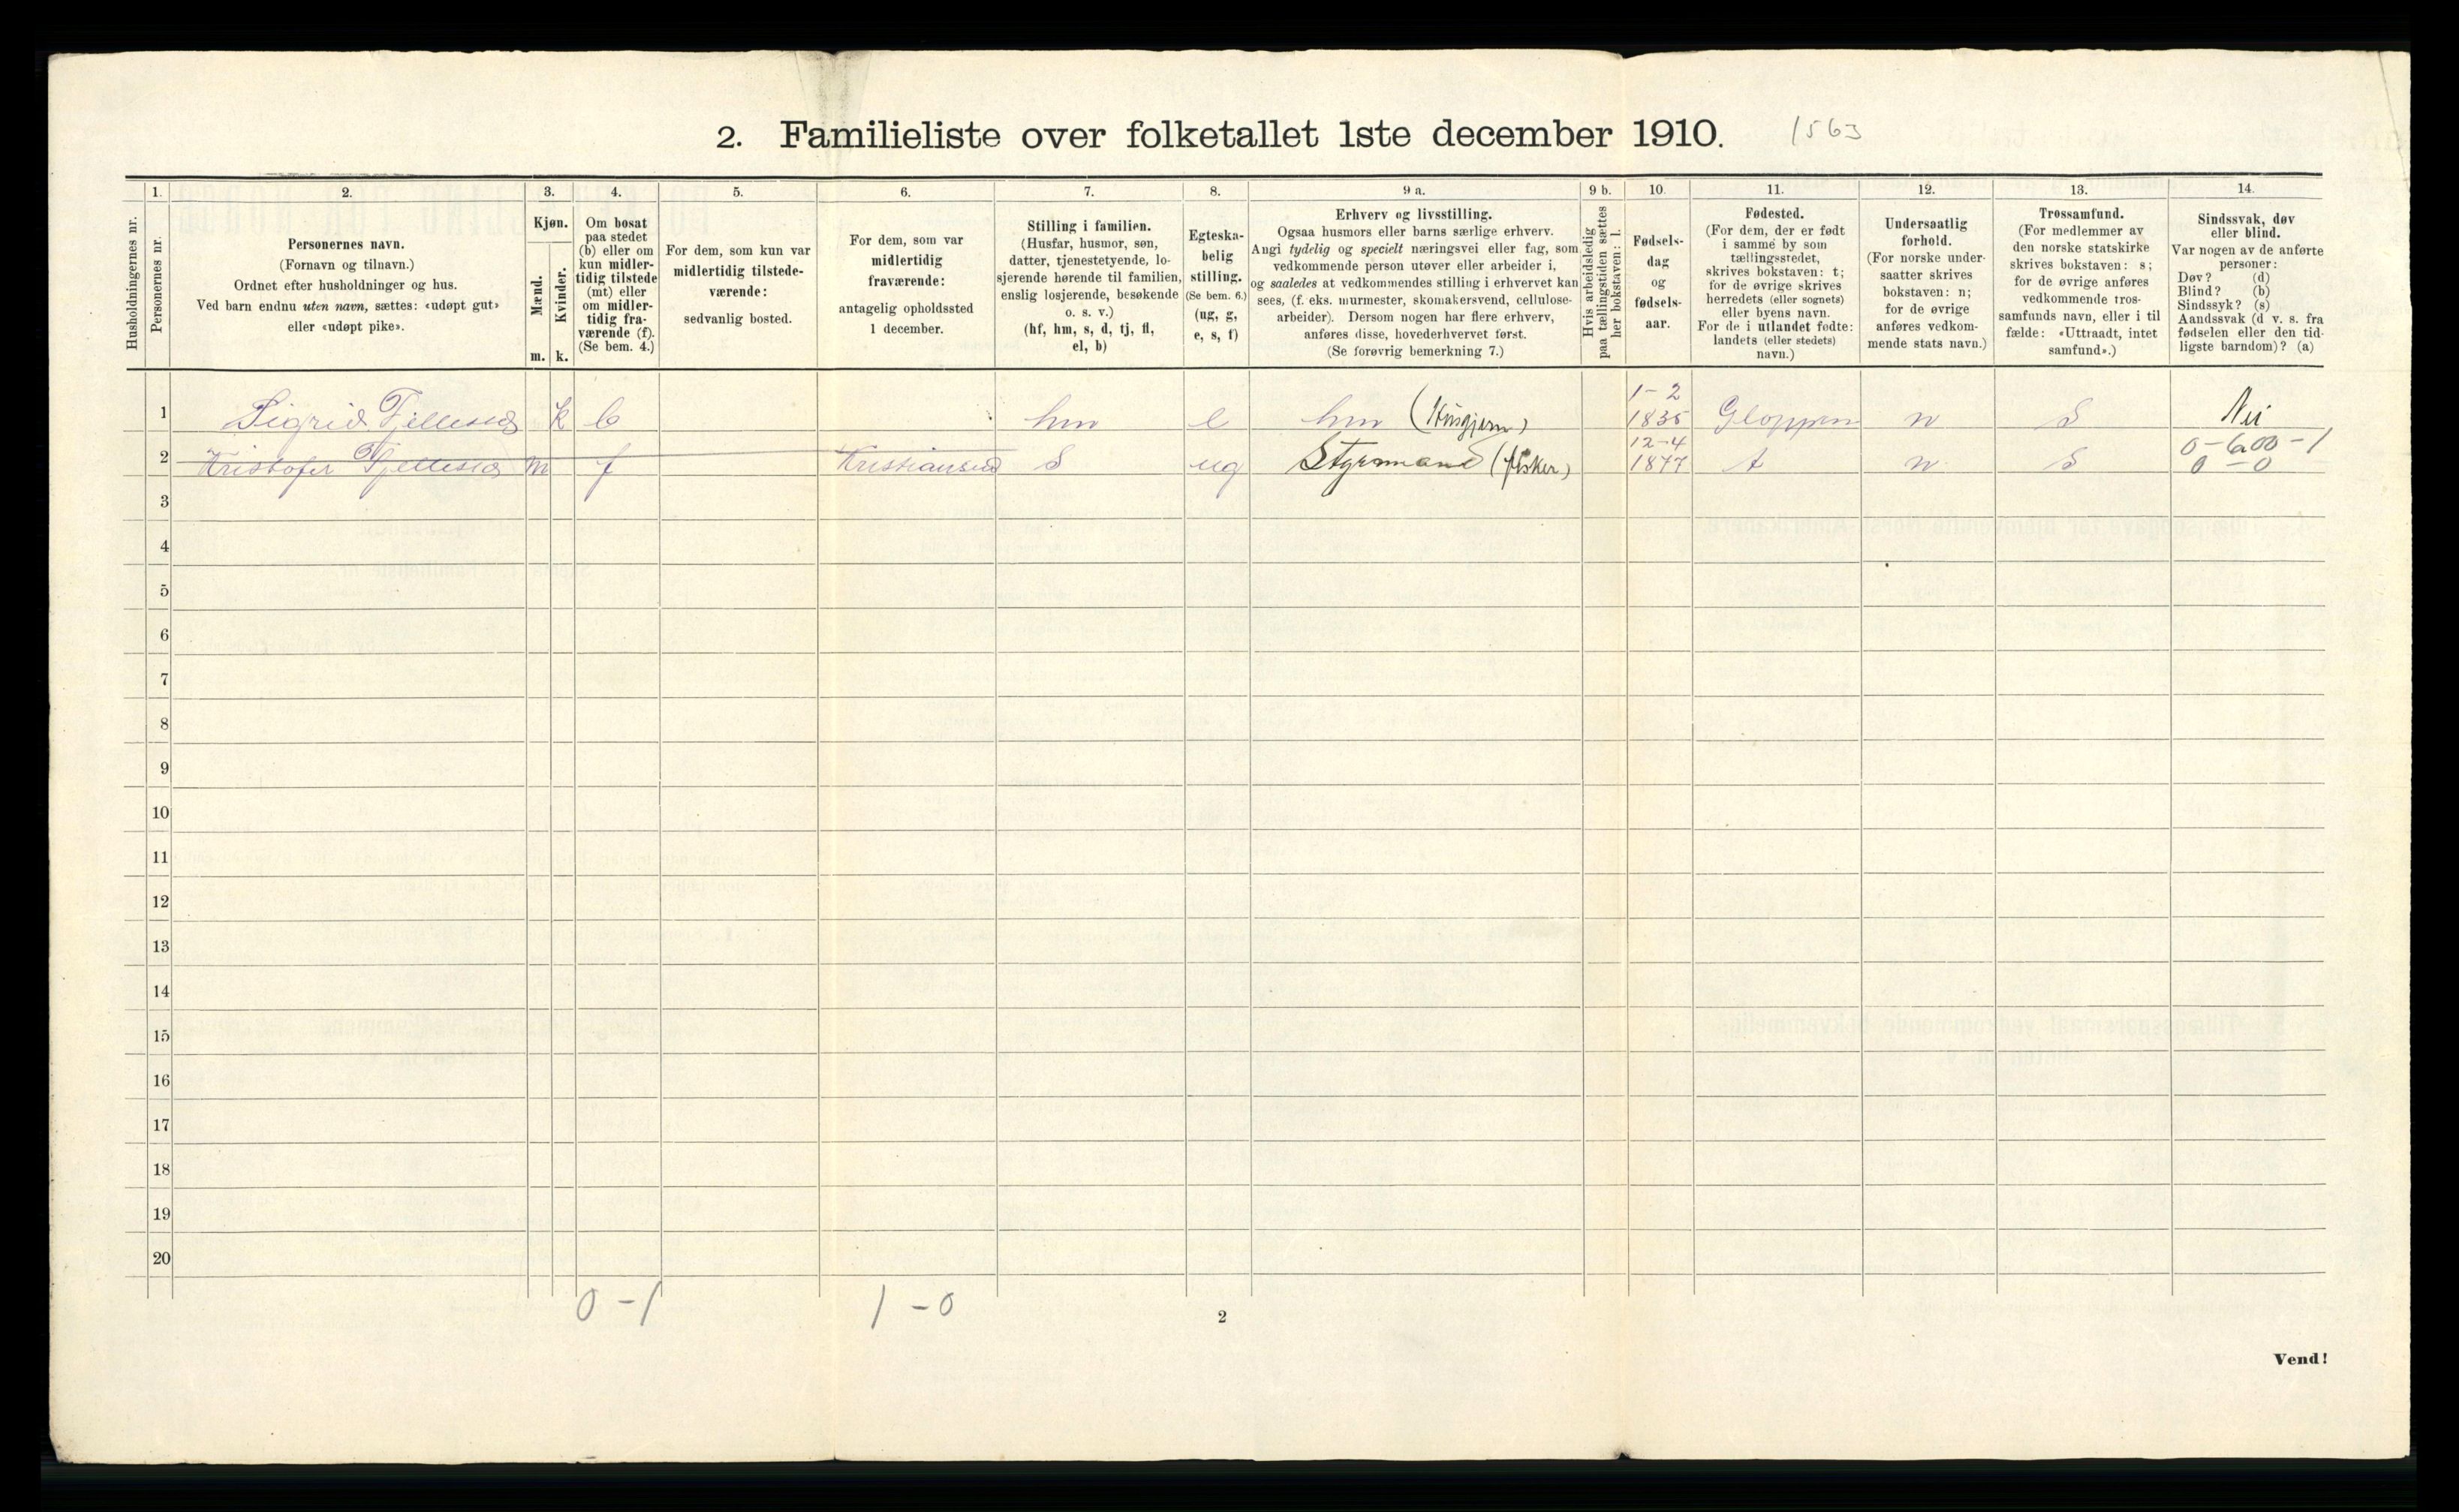 2. Familieliste over folketallet 1ste december 1910. 1563
1. 2. 3. 4. 5. 6. 7. 8. 9 a. 9 b. 10. 11. 12. 13. 14.
Husholdningernes nr.
Personernes nr.
Personernes navn.
(Fornavn og tilnavn.)
Ordnet efter husholdninger og hus.
Ved barn endnu uten navn, sættes: «udøpt gut»
eller «udøpt pike».
Kjøn.
Mænd.
Kvinder.
m. k.
Om bosat
paa stedet
(b) eller om
kun midler-
tidig tilstede
(mt) eller
om midler-
tidig fra-
værende (f).
(Se bem. 4.)
For dem, som kun var
midlertidig tilstede-
værende:
sedvanlig bosted.
For dem, som var
midlertidig
fraværende:
antagelig opholdssted
1 december.
Stilling i familien.
(Husfar, husmor, søn,
datter, tjenestetyende, lo-
sjerende hørende til familien,
enslig losjerende, besøkende
o. s. v.)
(hf, hm, s, d, tj, fl,
el, b)
Egteska-
belig
stilling.
(Se bem. 6.)
(ug, g,
e, s, f)
Erhverv og livsstilling.
Ogsaa husmors eller barns særlige erhverv.
Angi tydelig og specielt næringsvei eller fag, som
vedkommende person utøver eller arbeider i,
og saaledes at vedkommendes stilling i erhvervet kan
sees, (f. eks. murmester, skomakersvend, cellulose-
arbeider). Dersom nogen har flere erhverv,
anføres disse, hovederhvervet først.
(Se forøvrig bemerkning 7.)
Hvis arbeidsledig
paa tællingstiden sættes
her bokstaven: l.
Fødsels-
dag
og
fødsels-
aar.
Fødested.
(For dem, der er født
i samme by som
tællingsstedet,
skrives bokstaven: t;
for de øvrige skrives
herredets (eller sognets)
eller byens navn.
For de i utlandet fødte:
landets (eller stedets)
navn.)
Undersaatlig
forhold.
(For norske under-
saatter skrives
bokstaven: n;
for de øvrige
anføres vedkom-
mende stats navn.)
Trossamfund.
(For medlemmer av
den norske statskirke
skrives bokstaven: s;
for de øvrige anføres
vedkommende tros-
samfunds navn, eller i til
fælde: «Uttraadt, intet
samfund».)
Sindssvak, døv
eller blind.
Var nogen av de anførte
personer:
Døv? (d)
Blind? (b)
Sindssyk? (s)
Aandssvak (d v. s. fra
fødselen eller den tid-
ligste barndom)? (a)
1 Sigrid k b hm e hm 1-2 1835 Gloppen n S Nei
2 Kristofer m f Kristiansund S ug Styrmand (fisker) 12-4 1877 t n S 0-600-1
0-0
3
4
5
6
7
8
9
10
11
12
13
14
15
16
17
18
19
20
0-1 1-0
2
Vend!